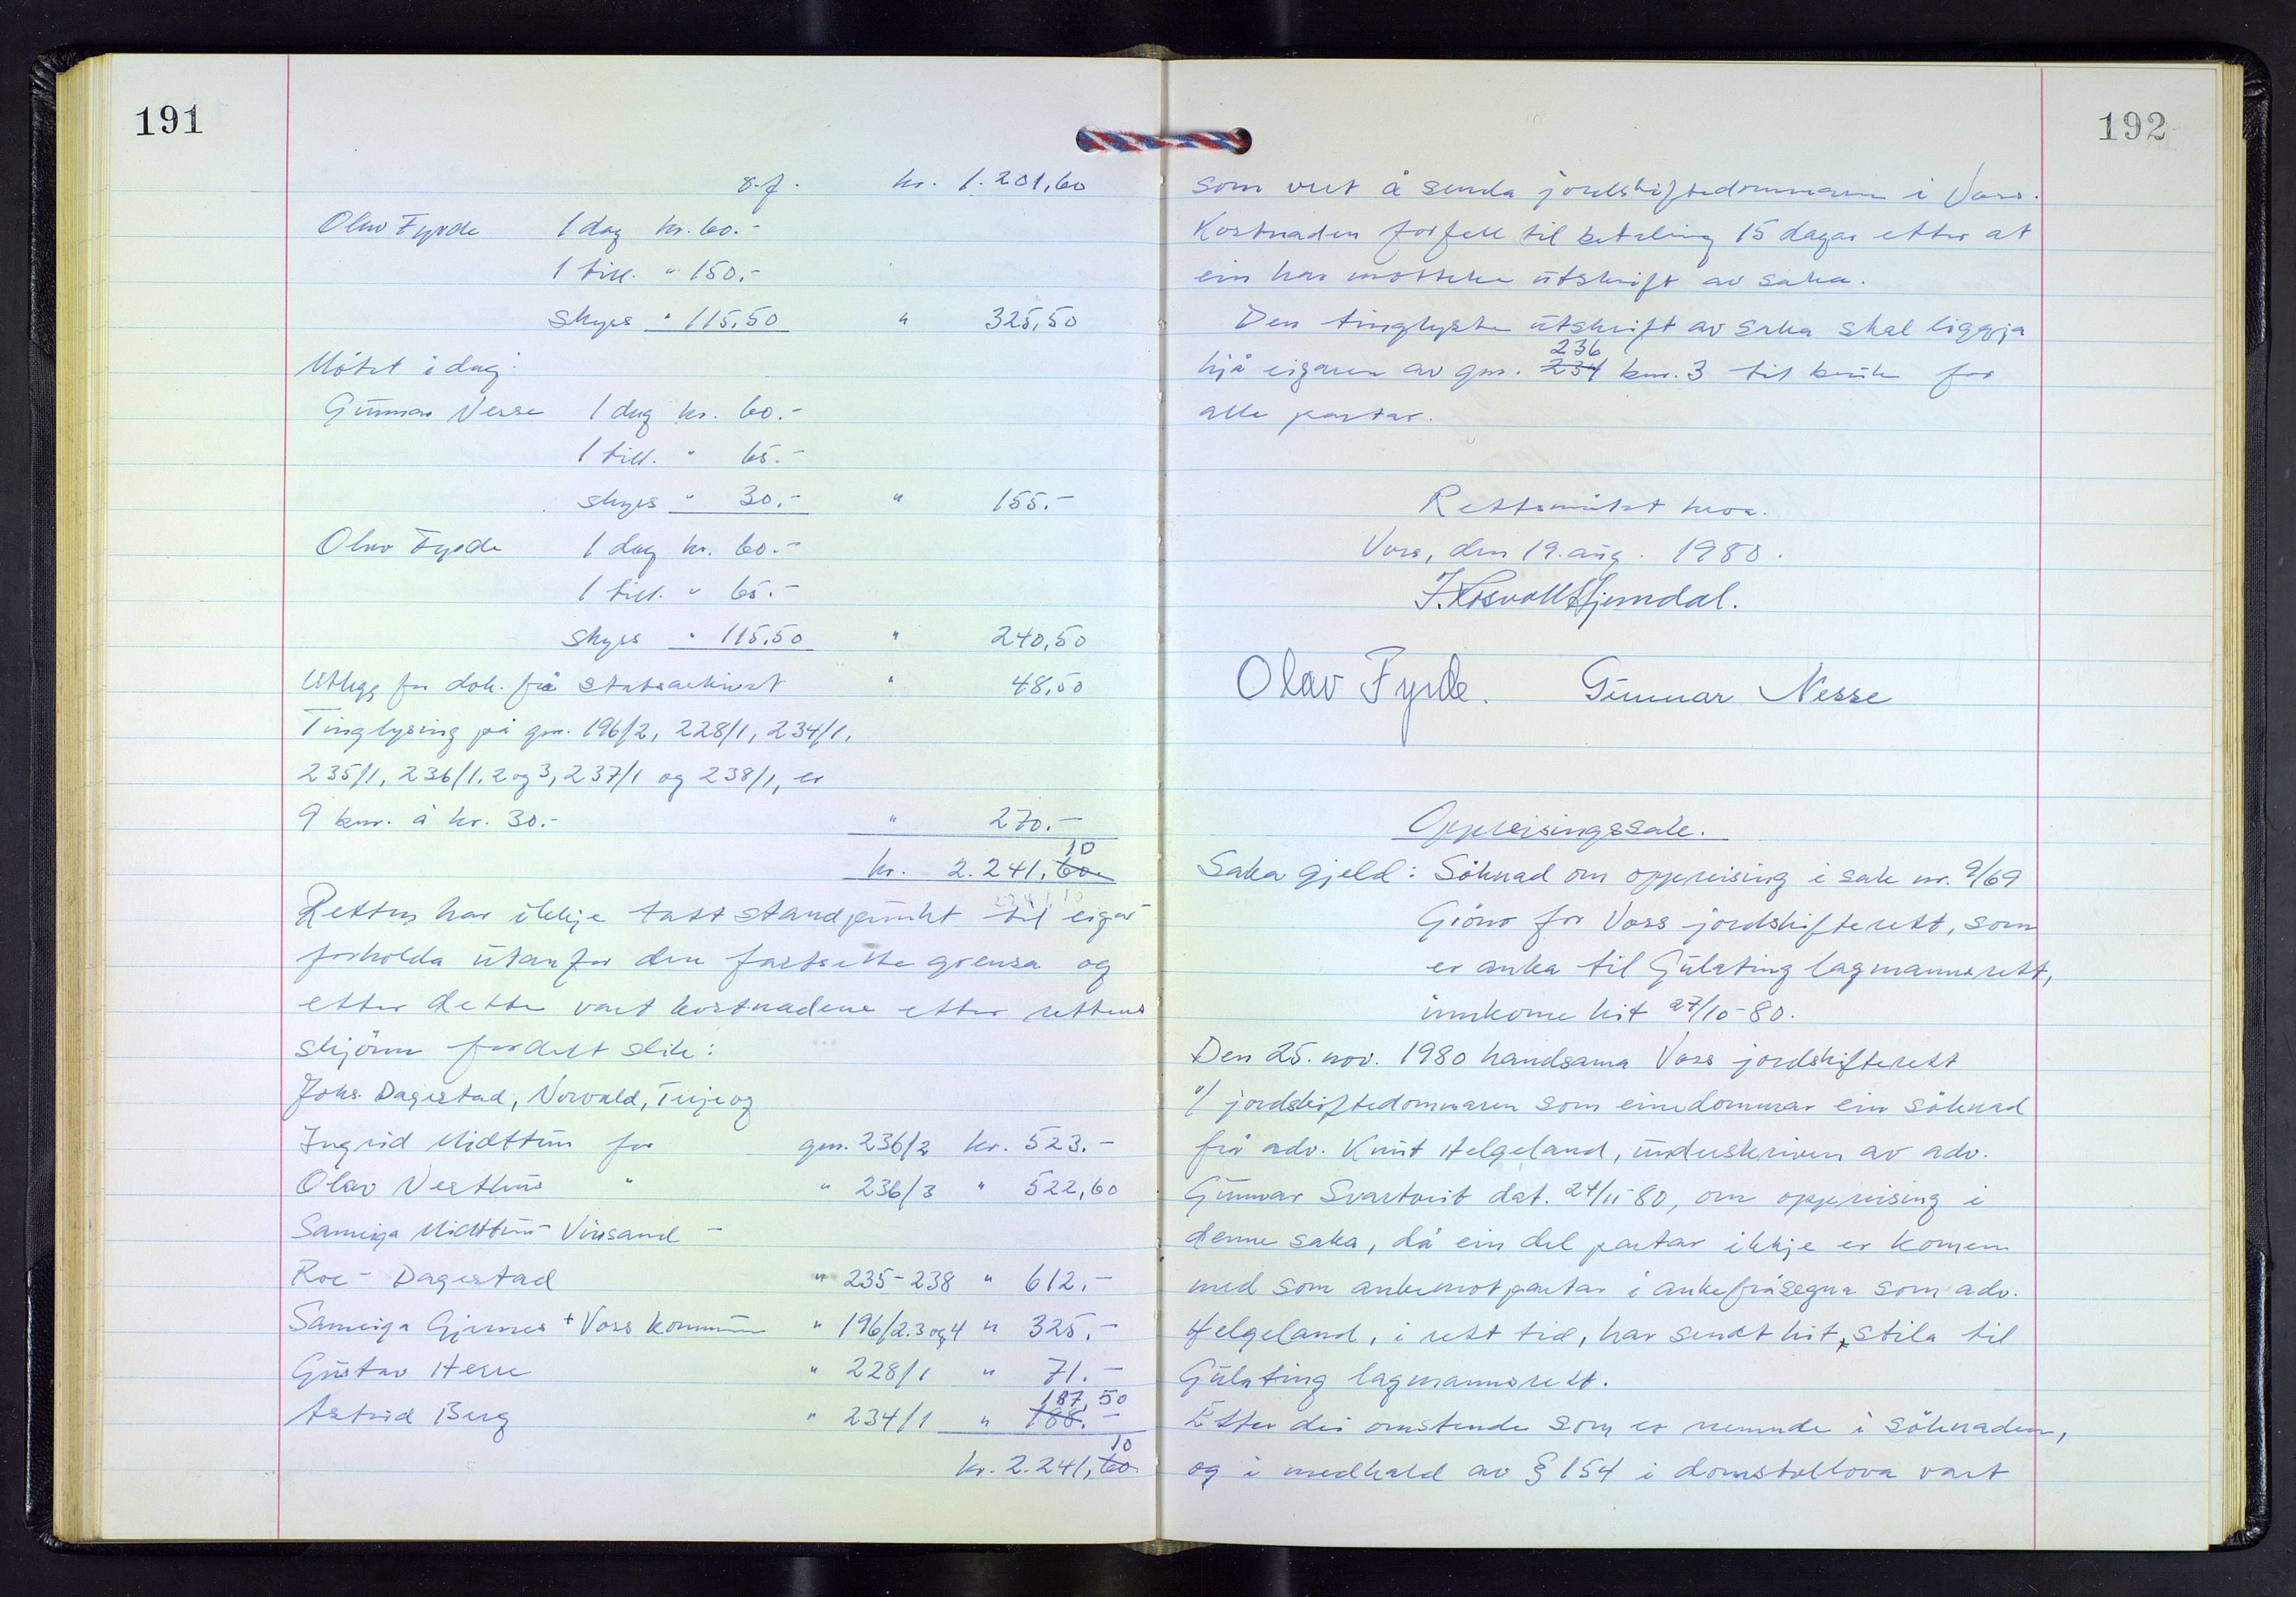 191
o.f. kr. 1.201,60
Olav Fyrde 1 dag kr. 60.-
1 till. " 150.-
Skyss " 115,50 " 325,50
Møtet i dag:
Gunnar Nesse 1 dag kr. 60.-
1 till. " 65.-
skyss " 30.- " 155.-
Olav Fyrde 1 dag kr. 60.-
1 till. " 65.-
Skyss " 115,50 " 240,50
Utlegg for dok. frå Statsarkivet " 48,50
Tinglysing på gnr. 196/2, 228/1, 234/1,
235/1, 236/1.2 og 3, 237/1 og 238/1, er
9 bnr. à kr. 30.- " 270.-
10
kr. 2.241,60
2241,10
Retten har ikkje tatt standpunkt til eigar
forholda utanfor den fastsette grensa og
etter dette vart kostnadene etter rettens
skjönn fordelt slik:
Johs. Dagestad, Norvald, Terje og
Ingrid Midttun for gnr. 236/2 kr. 523.-
Olav Vesthus " " 236/3 " 522,60
Sameiga Midttun - Vinsand -
Roe - Dagestad " 235-238 " 612.-
Sameiga Gjernes + Voss kommune " 196/2.3 og 4 " 325.-
Gustav Herre " 228/1 " 71.-
187,50
Astrid Berg " 234/1 " 188.-
10
kr. 2.241,60
192
som vert å senda jordskiftedommaren i Voss.
Kostnaden forfell til betaling 15 dagar etter at
ein har motteke utskrift av saka.
Den tinglyste utskrift av saka skal liggja
236
hjå eigaren av gnr. 234 bnr. 3 til bruk for
alle partar.
Rettsmøtet heva.
Voss, den 19. aug. 1980.
Olav Fyrde. Gunnar Nesse
Oppreisingssak.
Saka gjeld: Söknad om oppreising i sak nr. 9/69
Gröno for Voss jordskifterett, som
er anka til Gulating lagmannsrett,
innkome hit 27/10-80.
Den 25. nov. 1980 handsama Voss jordskifterett
v/ jordskiftedommaren som einedommar ein söknad
frå adv. Knut Helgeland, underskriven av adv.
Gunnar Svartveit dat. 24/11-80, om oppreising i
denne saka, då ein del partar ikkje er komen
med som ankemotpartar i ankefråsegna som adv.
Helgeland, i rett tid, har sendt hit, stila til
Gulating lagmannsrett.
Etter dei omstende som er nemnde i söknaden,
og i medhald av § 154 i domstollova vart